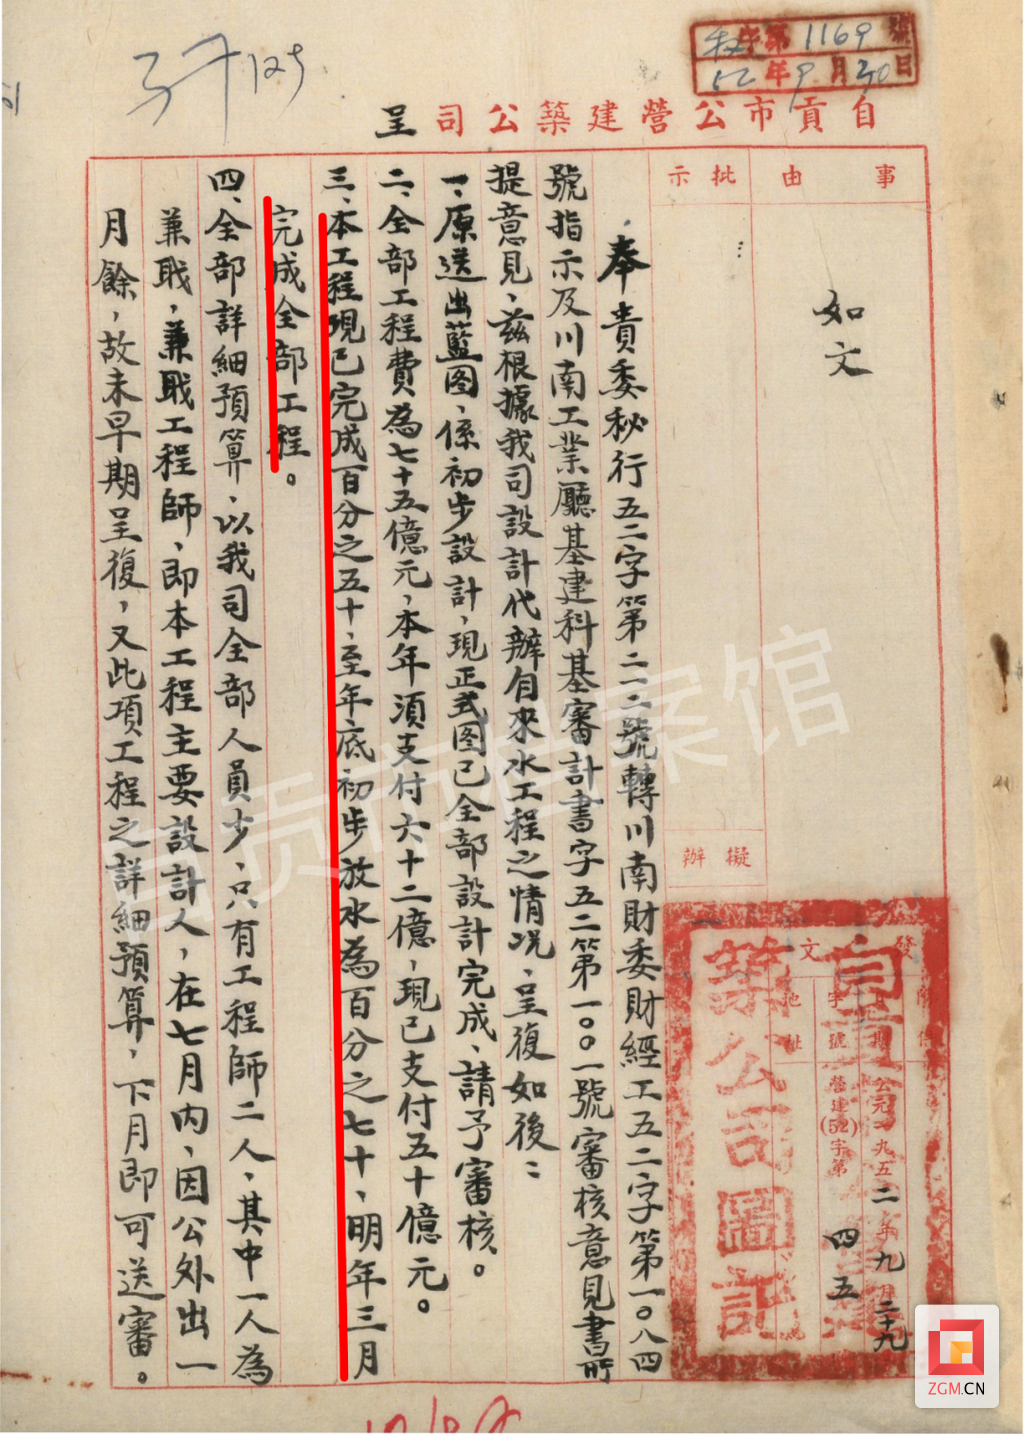 秘 第 1169 號
52 年 9 月 30 日
自貢市公營建築公司 呈
事由
批示
如文
擬辦
發文
附件
日期 公元一九五二年九月二十九
字號 營建(52)字第 四五
地址
自貢
築公司圖記
奉貴委秘行五二字第二二二號轉川南財委財經工五二字第一〇八四
號指示及川南工業廳基建科基審計書字五二第一〇〇一號審核意見書所
提意見、茲根據我司設計代辦自來水工程之情况、呈復如後：
一、原送出藍图、係初步設計，現正式图已全部設計完成、請予審核。
二、全部工程費為七十五億元，本年須支付六十二億，現已支付五十億元。
三、本工程現已完成百分之五十、至年底初步放水為百分之七十、明年三月
完成全部工程。
四、全部詳細預算、以我司全部人員少、只有工程師二人、其中一人為
兼職，兼職工程師、即本工程主要設計人，在七月內、因公外出一
月餘，故未早期呈復，又此項工程之詳細預算，下月即可送審。
自贡市档案馆
ZGM.CN